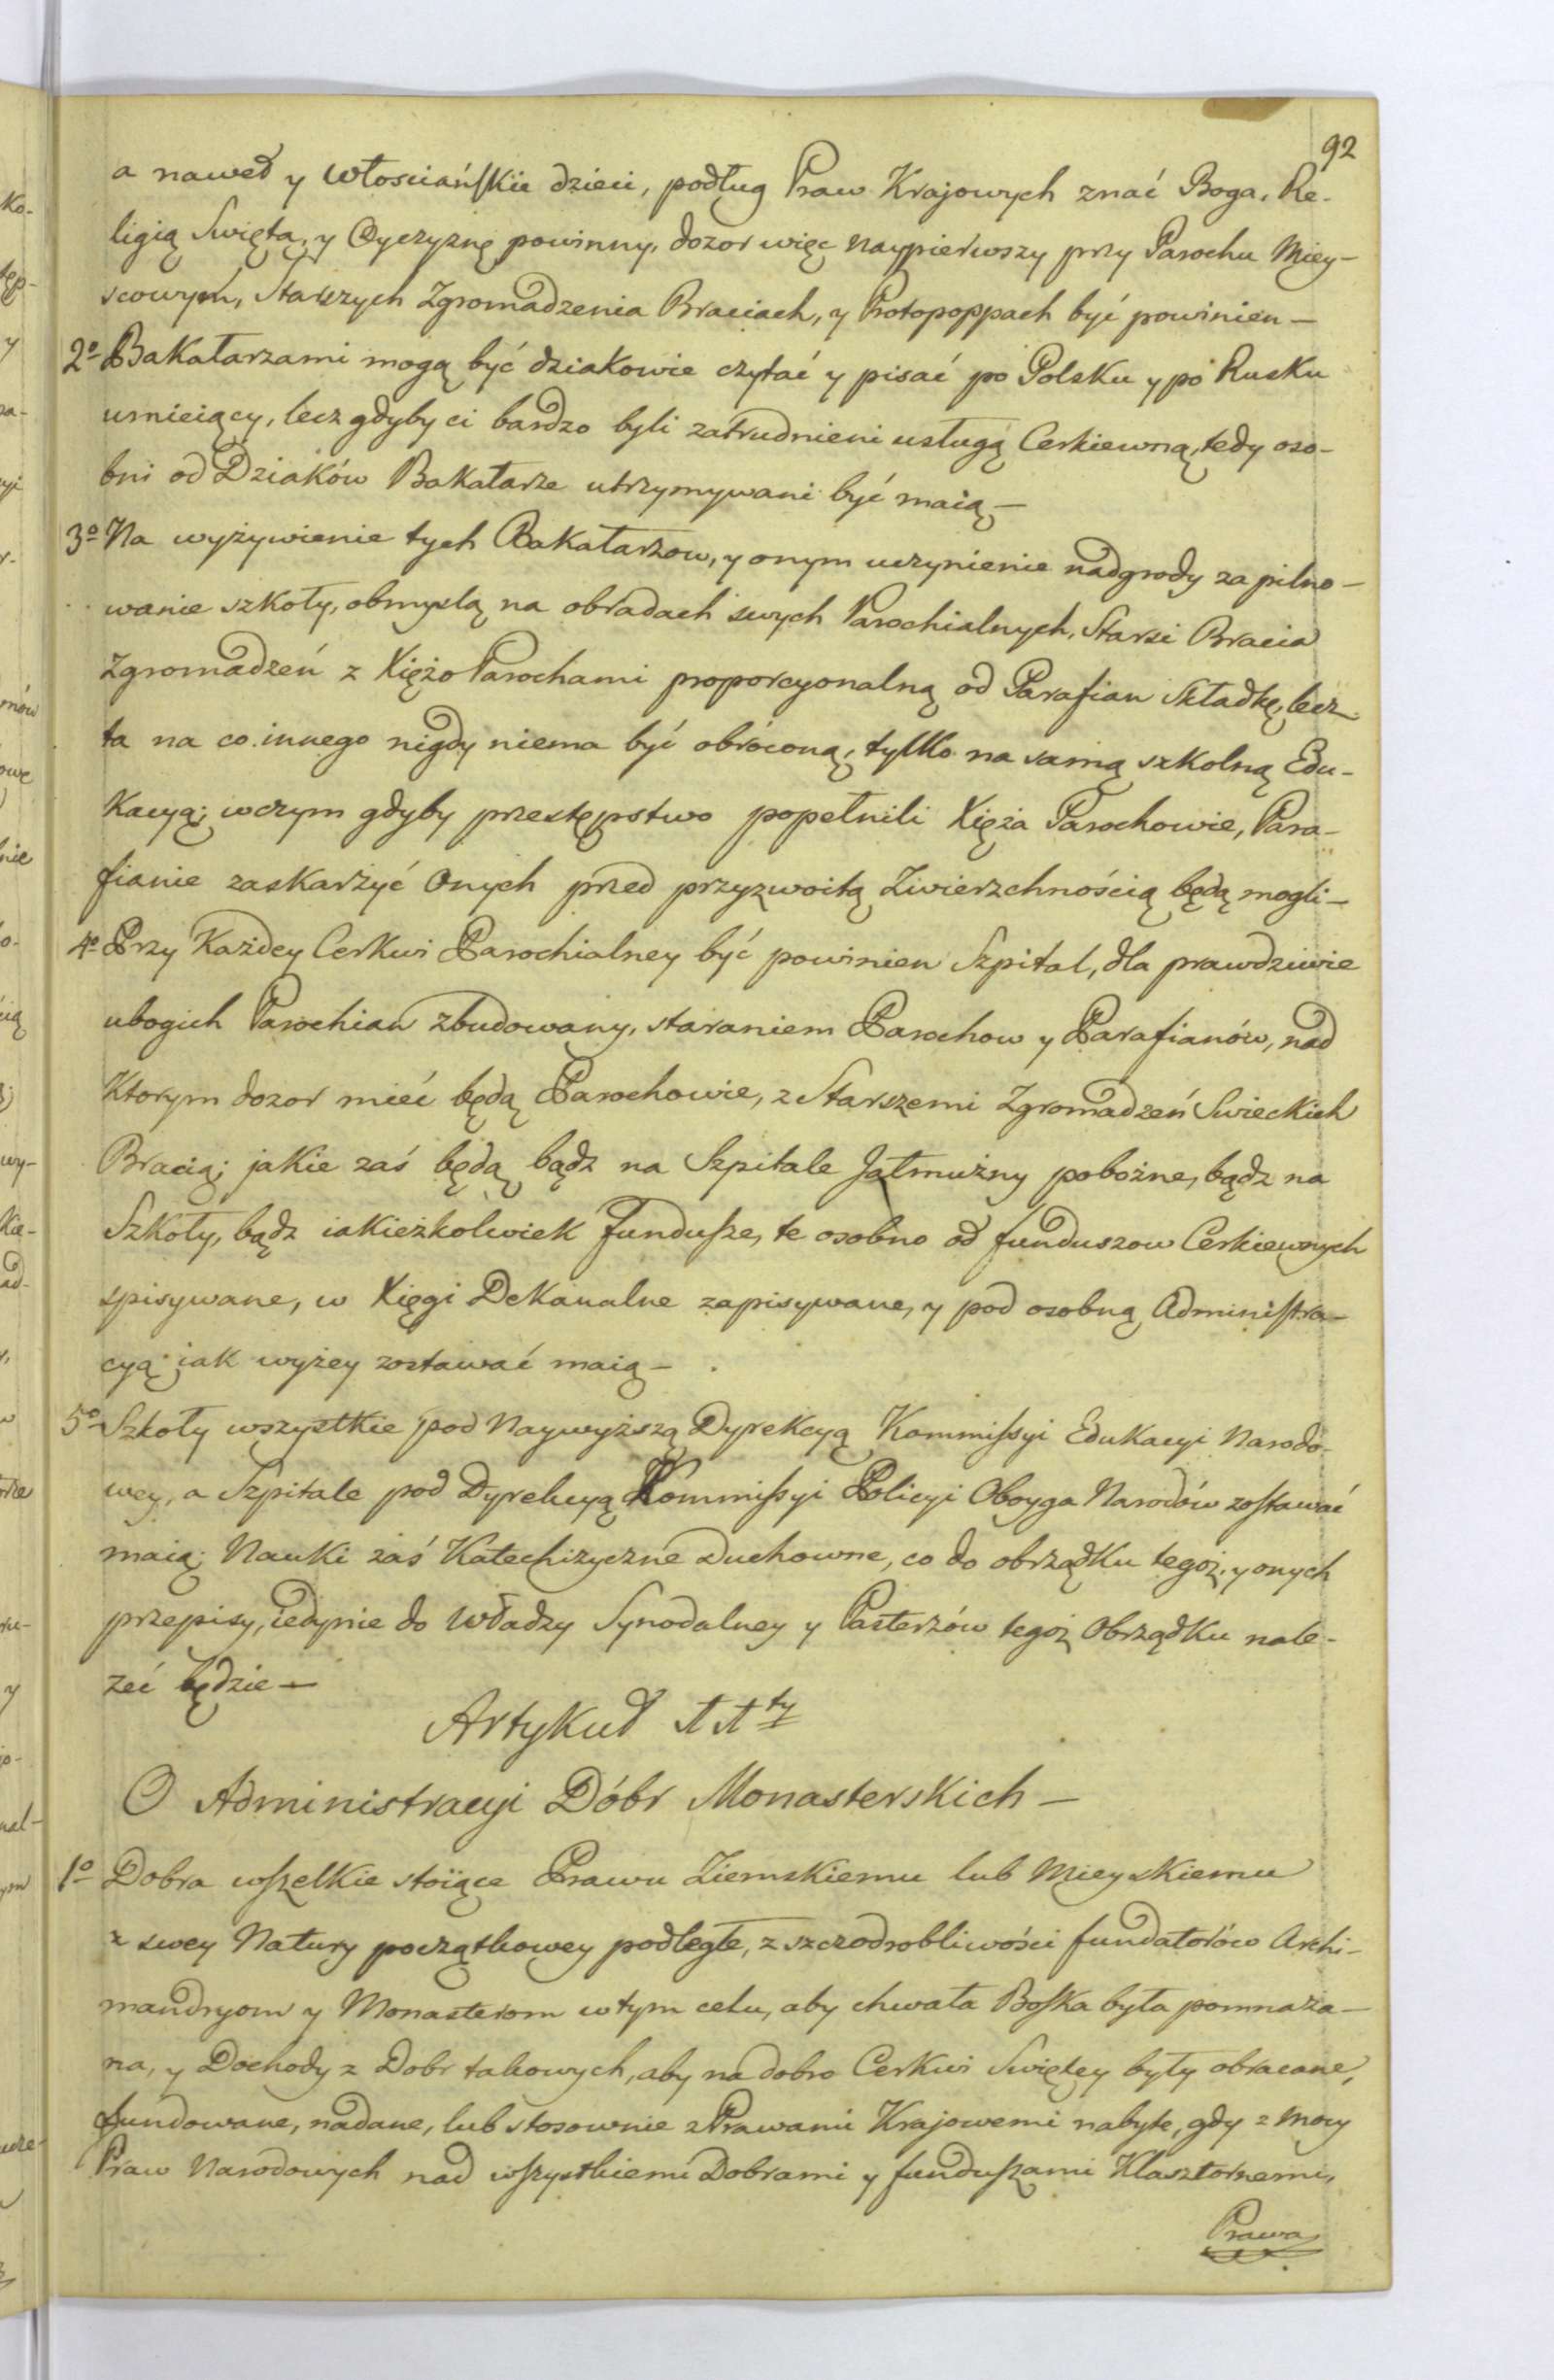 92
a nawed y Włosciańskie dzieci, podług Praw Krajowych znać Boga, Re-
ligią Swiętą, y Oyczyznę powinny, dozor więc naypierwszy przy Parochu Miey-
scowym, Starszych Zgromadzenia Braciach, y Protopoppach być powinien —
2o Bakałarzami mogą być dziakowie czytać y pisać po Polsku y po Rusku
umieiący, lecz gdyby ci bardzo byli zatrudnieni usługą Cerkiewną, tedy oso-
bni od Dziaków Bakałarze utrzymywani być maią —
3o Na wyżywienie tych Bakałarzow, y onym uczynienie nadgrody za pilno-
wanie szkoły, obmyslą na obradach swych Parochialnych, Starsi Bracia
Zgromadzeń z Xiężo Parochami proporcyonalną od Parafian Składkę, lecz
ta na co innego nigdy niema być obróconą, tylko na samą szkolną Edu-
kacyą; wczym gdyby przestępstwo popełnili Xięża Parochowie, Para-
fianie zaskarżyć Onych przed przyzwoitą Zwierzchnością będą mogli —
4o Przy Każdey Cerkwi Parochialney być powinien Szpital, dla prawdziwie
ubogich Parochian zbudowany, staraniem Parochow y Parafianów, nad
Ktorym dozor mieć będą Parochowie, z Starszemi Zgromadzeń Swieckich
Bracią; jakie zaś będą bądz na Szpitale Jałmużny pobożne, bądz na
Szkoły, bądz iakieżkolwiek fundusze, te osobno od funduszow Cerkiewnych
spisywane, w Xięgi Dekanalne zapisywane, y pod osobną Administra-
cyą jak wyżey zostawać maią —
5o Szkoły wszystkie pod Naywyższą Dyrekcyą Kommissyi Edukacyi Narodo-
wey, a Szpitale pod Dyrekcyą Kommissyi Policyi Oboyga Narodów zostawać
maią; Nauki zaś Katechizyczne Duchowne, co do obrządku tegoż, y onych
przepisy, iedynie do Władzy Synodalney y Pasterzów tegoż Obrządku nale-
żeć będzie —
Artykuł XXty
O Administracyi Dóbr Monasterskich —
1o Dobra wszelkie stoiące Prawu Ziemskiemu lub Mieyskiemu
z swey Natury początkowey podległe, z szczodrobliwości fundatorów Archi-
mandryom y Monasterom w tym celu, aby chwała Boska była pomnaża-
na, y Dochody z Dobr takowych, aby na dobro Cerkwi Swiętey były obracane,
fundowane, nadane, lub stosownie z Prawami Krajowemi nabyte, gdy z mocy
Praw Narodowych nad wszystkiemi Dobrami y funduszami Klasztornemi,
Prawa